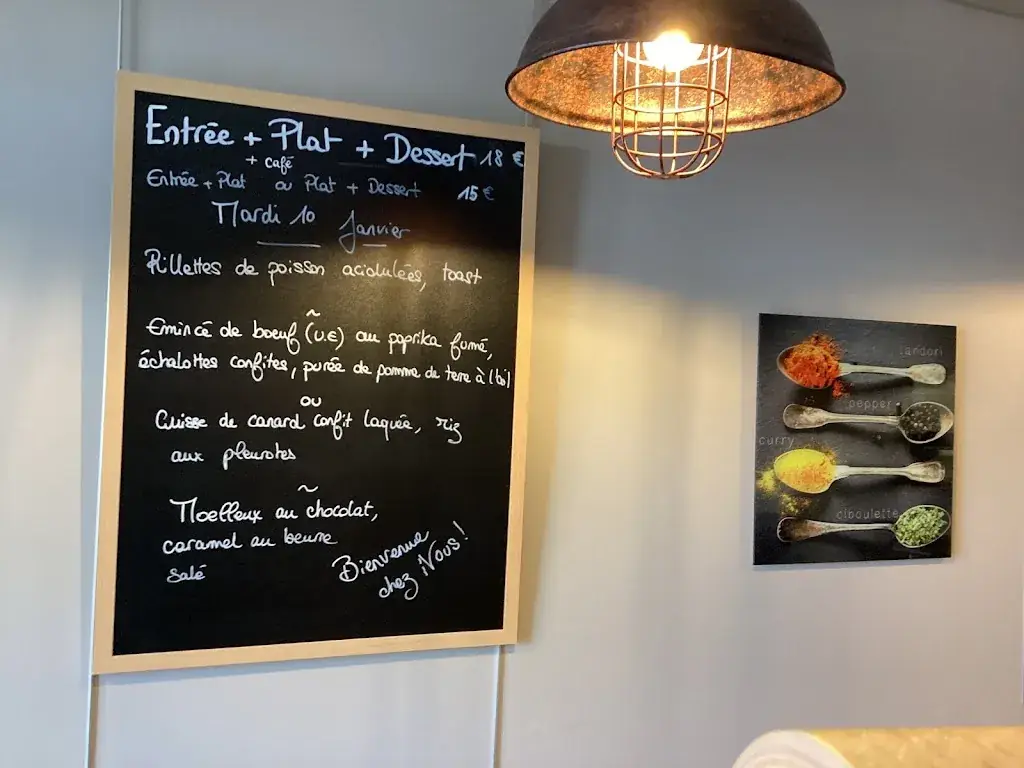 Entrée + Plat + Dessert 18 €
+ café
Entrée + Plat ou Plat + Dessert 15 €
Mardi 10 Janvier
Rillettes de poisson acidulées, toast
~
Emincé de boeuf (U.E) au paprika fumé,
échalottes confites, purée de pomme de terre à l'ail
ou
Cuisse de canard confit laquée, riz
aux pleurotes
~
Moelleux au chocolat,
caramel au beurre
salé
Bienvenue
chez Nous!
tandori
pepper
curry
ciboulette